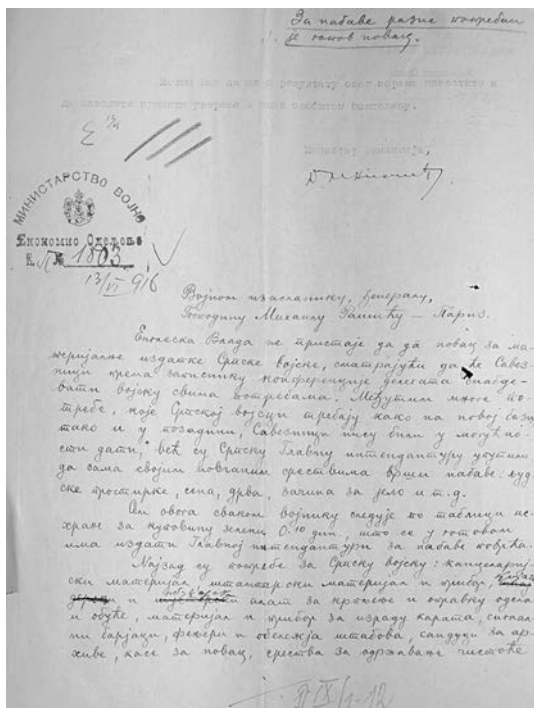 За набаве разне потребан
је готов новац.
Министар
МИНИСТАРСТВО ВОЈНО
Економно Одељење
Е. № 1803
13/VI 916
Војном изасланику, Ђенералу,
Господину Михаилу Рашићу – Париз.
Енглеска Влада не пристаје да да новац за ма-
теријалне издатке Српске војске, сматрајући да ће Савез-
ници према записнику конференције делегата снабде-
вати војску свима потребама. Међутим многе по-
требе, које Српској војсци требају како на новој бази
тако и у позадини, Савезници нису били у могућно-
сти дати, већ су Српску Главну интендантуру упутили
да сама својим новчаним средствима врши набаве: људ-
ске простирке, сена, дрва, зачина за јело и т.д.
Сем овога сваком војнику следује по таблици ис-
хране за куповину зелени 0.10 дин, што се у готовом
има издати Главној интендантури за набаве поврћа.
Најзад су потребе за Српску војску: канцелариј-
ски материјал, штампарски материјал и прибор,
и алат за крпљење и оправку одела
и обуће, материјал и прибор за израду карата, сигнал-
ни барјаци, фењери и обележја штабова, сандуци за ар-
хиве, касе за новац, средства за одржавање чистоће